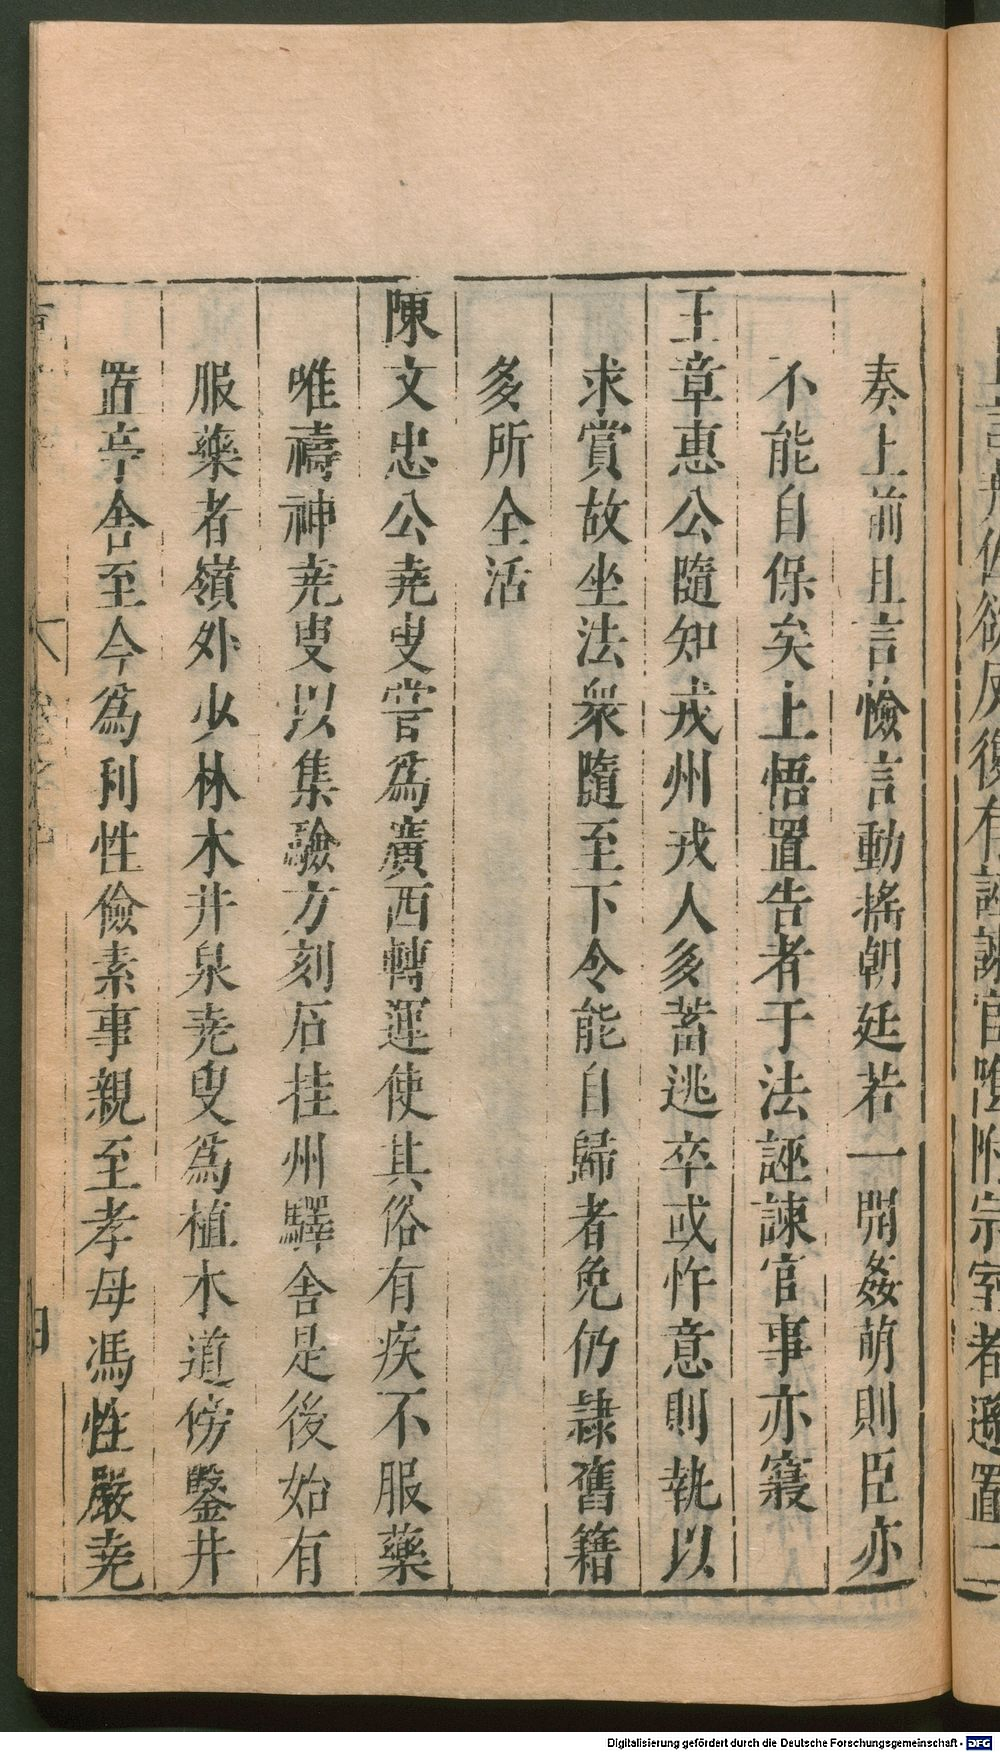 奏上前且言憸言動搖朝廷若一開姦萌則臣亦
不能自保矣上悟置告者于法誣諫官事亦寢
王章惠公隨知戎州戎人多蓄逃卒或忤意則執以
求賞故坐法衆隨至下令能自歸者免仍隷舊籍
多所全活
陳文忠公堯叟嘗爲廣西轉運使其俗有疾不服藥
唯禱神堯叟以集驗方刻石挂州驛舍是後始有
服藥者嶺外少林木井泉堯叟爲植木道傍鑿井
置亭舍至今爲利性儉素事親至孝母馮性嚴堯
Digitalisierung gefördert durch die Deutsche Forschungsgemeinschaft - DFG